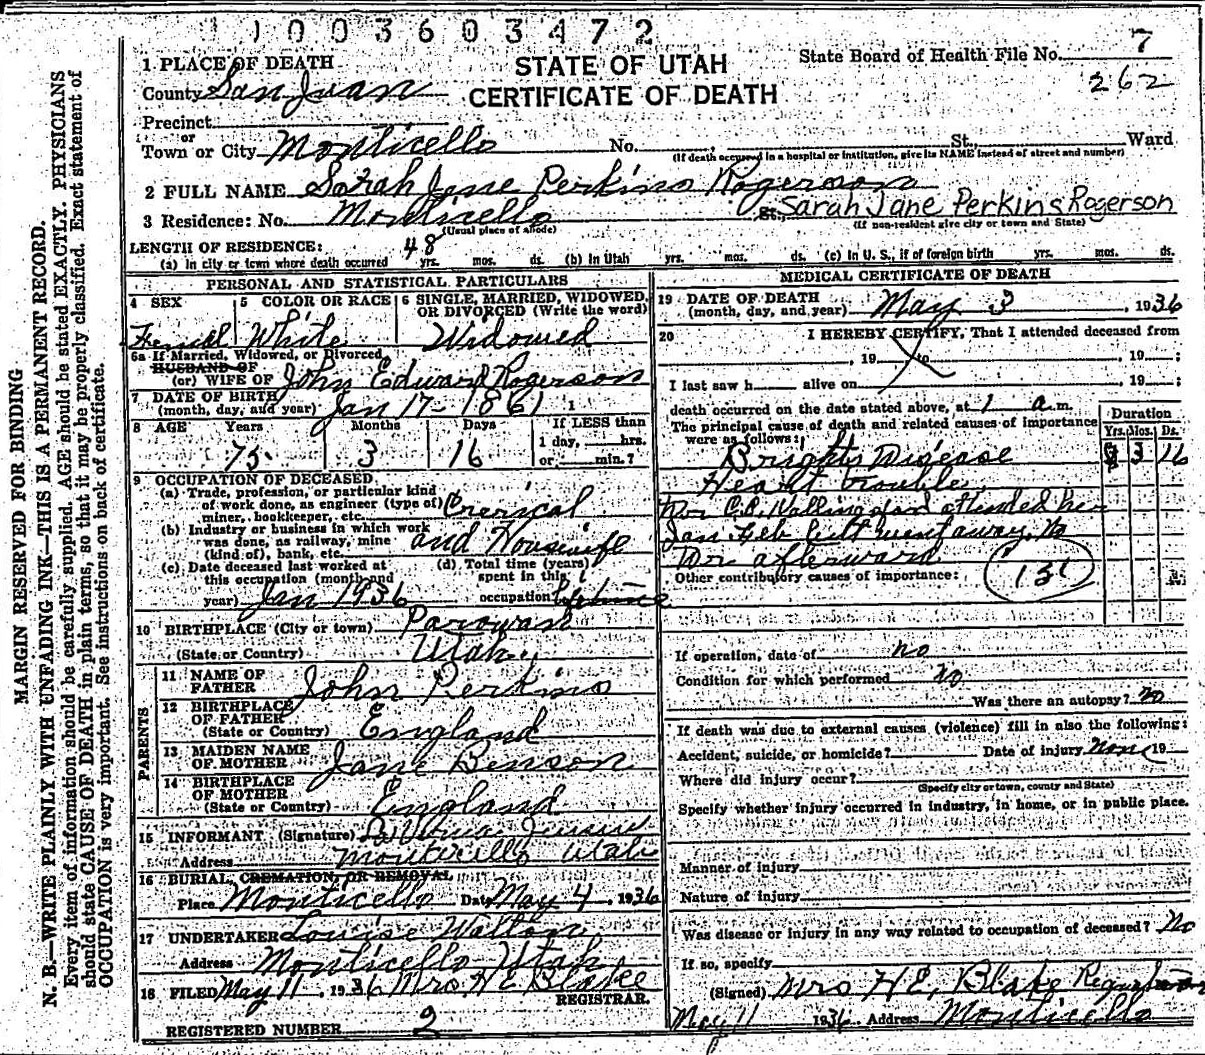 1003603472
STATE OF UTAH
CERTIFICATE OF DEATH
State Board of Health File No. 7
262
1 PLACE OF DEATH
County San Juan
Precinct
or
Town or City Monticello No. , St., Ward
(If death occurred in a hospital or institution, give its NAME instead of street and number)
2 FULL NAME Sarah Jane Perkins Rogerson
3 Residence: No. Monticello St. Sarah Jane Perkins Rogerson
(Usual place of abode) (If non-resident give city or town and State)
LENGTH OF RESIDENCE:
(a) In city or town where death occurred 48 yrs. mos. ds. (b) In Utah yrs. mos. ds. (c) In U. S., if of foreign birth yrs. mos. ds.
PERSONAL AND STATISTICAL PARTICULARS
4 SEX 5 COLOR OR RACE 6 SINGLE, MARRIED, WIDOWED, OR DIVORCED (Write the word)
White Widowed
6a If Married, Widowed, or Divorced
HUSBAND OF
(or) WIFE OF John Edward Rogerson
7 DATE OF BIRTH
(month, day, and year) Jan 17 - 1861 1
8 AGE Years Months Days If LESS than
1 day, hrs.
75 3 16 or min.?
9 OCCUPATION OF DECEASED
(a) Trade, profession, or particular kind
of work done, as engineer (type of)
miner, bookkeeper, etc.
(b) Industry or business in which work
was done, as railway, mine
(kind of), bank, etc. and Housewife
(c) Date deceased last worked at
this occupation (month and
year) Jan 1936
(d) Total time (years)
spent in this
occupation lifetime
10 BIRTHPLACE (City or town) Parowan
(State or Country) Utah
PARENTS
11 NAME OF
FATHER John Perkins
12 BIRTHPLACE
OF FATHER
(State or Country) England
13 MAIDEN NAME
OF MOTHER Jane Benson
14 BIRTHPLACE
OF MOTHER
(State or Country) England
15 INFORMANT (Signature)
Address Monticello Utah
16 BURIAL, CREMATION, OR REMOVAL
Place Monticello Date May 4, 1936
17 UNDERTAKER Louise Walton
Address Monticello Utah
18 FILED May 11, 1936 Mrs. H E Blake
REGISTRAR.
REGISTERED NUMBER 2
MEDICAL CERTIFICATE OF DEATH
19 DATE OF DEATH
(month, day, and year) May 3, 1936
20 I HEREBY CERTIFY, That I attended deceased from
, 19 to , 19 ;
I last saw h alive on , 19 ;
death occurred on the date stated above, at 1 a.m.
The principal cause of death and related causes of importance
were as follows:
Duration
Yrs. Mos. Ds.
Brights Disease 3 16
Heart trouble
Dr. attended her
Jan. Feb but went away. No
Dr. afterward
Other contributory causes of importance: 131
If operation, date of no
Condition for which performed no
Was there an autopsy? no
If death was due to external causes (violence) fill in also the following:
Accident, suicide, or homicide? Date of injury none 19
Where did injury occur?
(Specify city or town, county and State)
Specify whether injury occurred in industry, in home, or in public place.
Manner of injury
Nature of injury
Was disease or injury in any way related to occupation of deceased? No
If so, specify
(Signed) Mrs H E, Blake Registrar
May 11 1936 Address Monticello
MARGIN RESERVED FOR BINDING
N. B.—WRITE PLAINLY WITH UNFADING INK—THIS IS A PERMANENT RECORD.
Every item of information should be carefully supplied. AGE should be stated EXACTLY. PHYSICIANS
should state CAUSE OF DEATH in plain terms, so that it may be properly classified. Exact statement of
OCCUPATION is very important. See instructions on back of certificate.